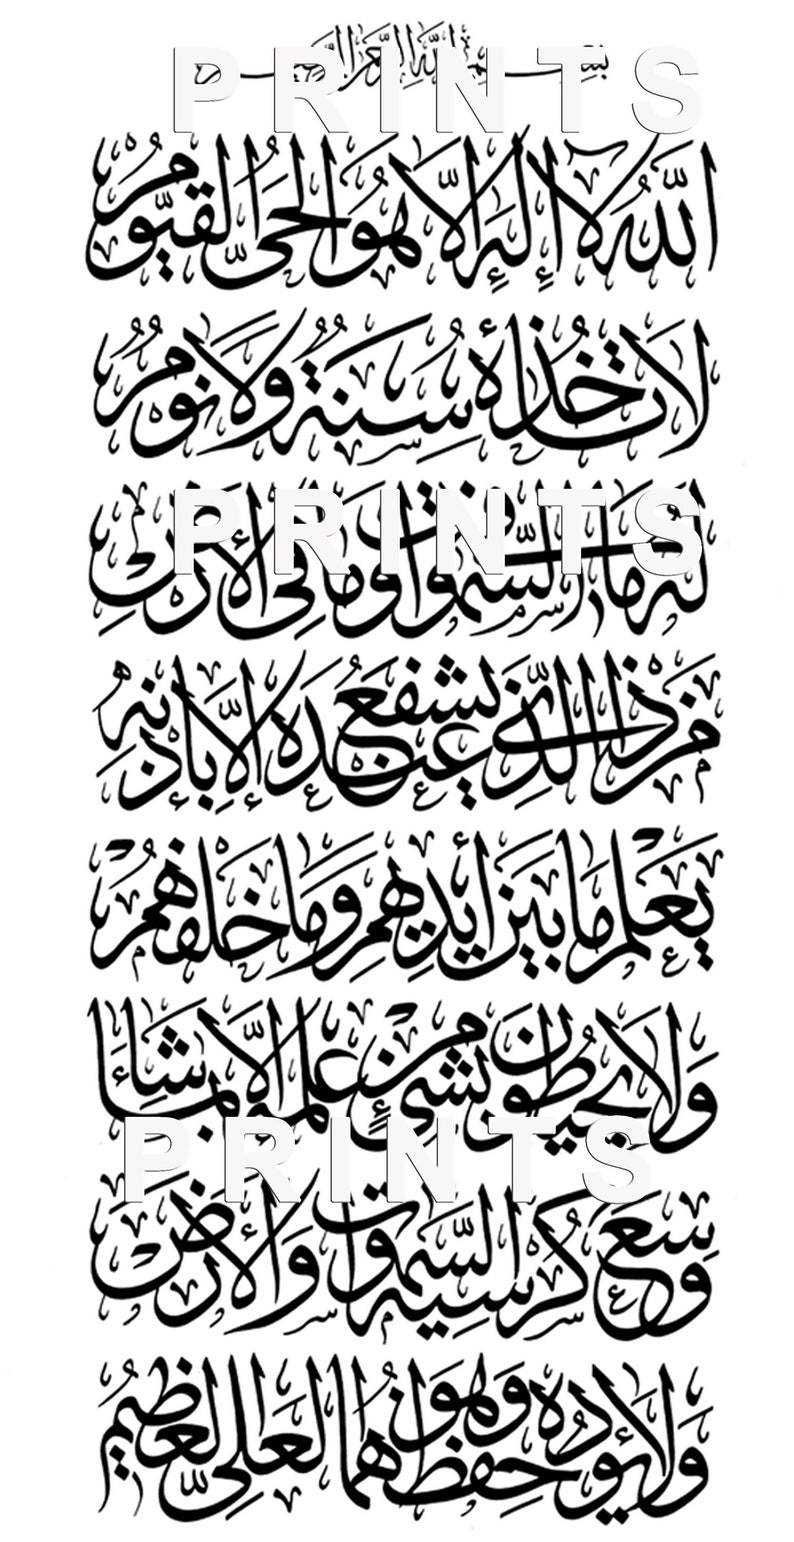 بسم الله الرحمن الرحيم
PRINTS
اَللّٰهُ لَا إِلٰهَ إِلَّا هُوَ الْحَيُّ الْقَيُّومُ
لَا تَأْخُذُهُ سِنَةٌ وَلَا نَوْمٌ
لَهُ مَا فِي السَّمٰوَاتِ وَمَا فِي الْأَرْضِ
PRINTS
مَنْ ذَا الَّذِي يَشْفَعُ عِنْدَهُ إِلَّا بِإِذْنِهِ
يَعْلَمُ مَا بَيْنَ أَيْدِيهِمْ وَمَا خَلْفَهُمْ
وَلَا يُحِيطُونَ بِشَيْءٍ مِنْ عِلْمِهِ إِلَّا بِمَا شَاءَ
PRINTS
وَسِعَ كُرْسِيُّهُ السَّمٰوَاتِ وَالْأَرْضَ
وَلَا يَئُودُهُ حِفْظُهُمَا وَهُوَ الْعَلِيُّ الْعَظِيمُ